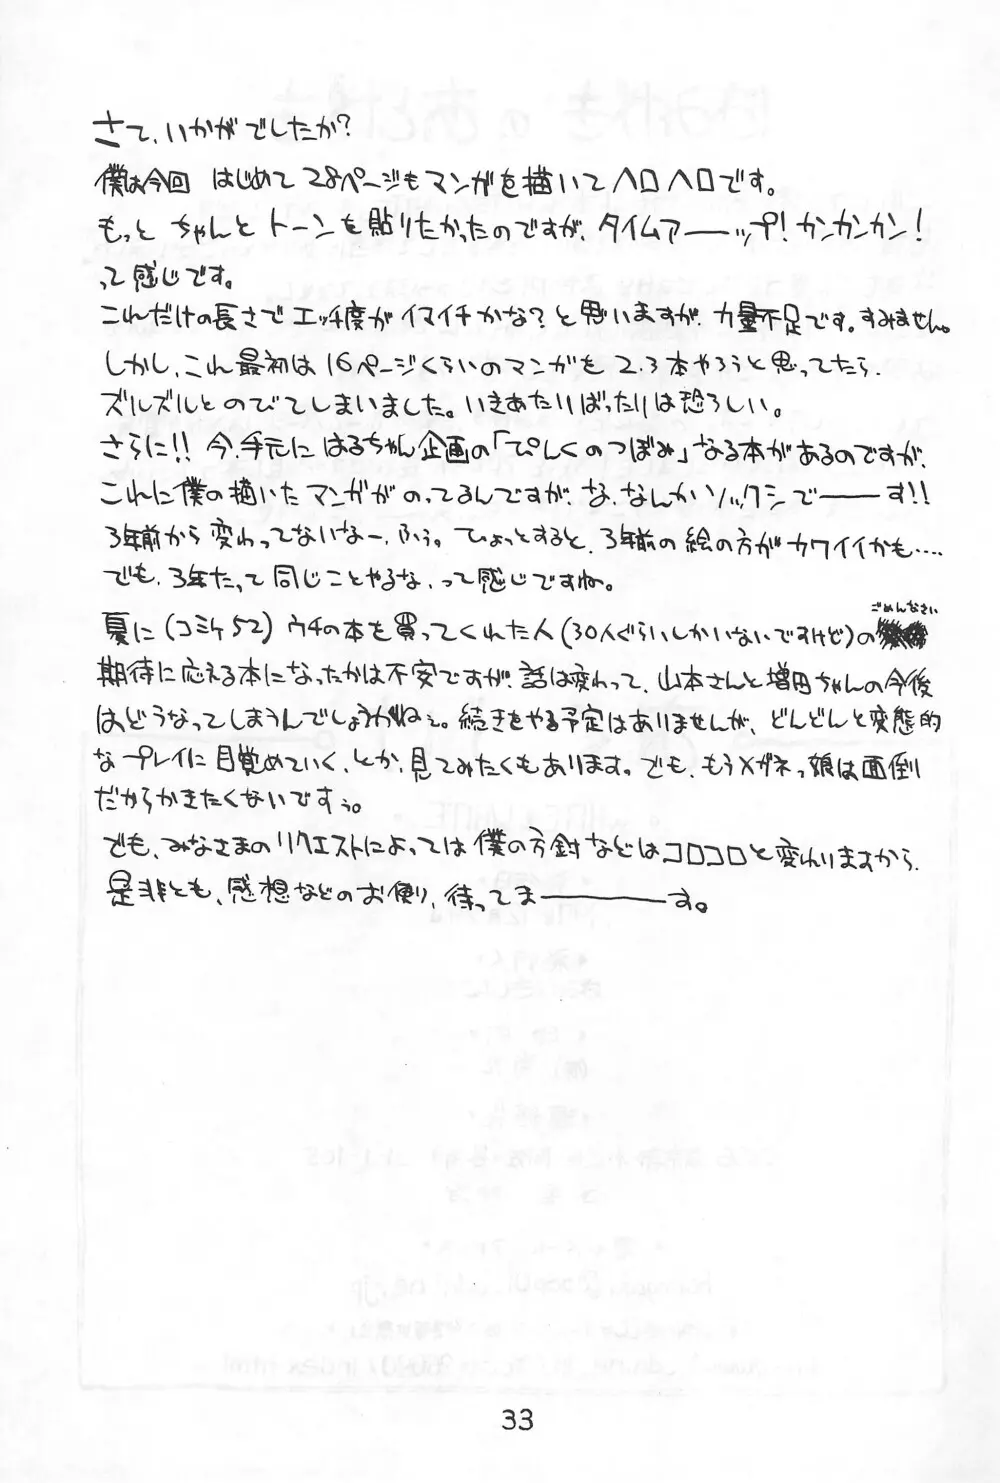 さて、いかがでしたか?
僕は今回 はじめて28ページもマンガを描いてヘロヘロです。
もっと ちゃんと トーンを貼りたかったのですが、タイムアーップ!カンカンカン!
って感じです。
これだけの長さで エッチ度がイマイチかな?と思いますが、力量不足です。すみません。
しかし、これ最初は16ページくらいのマンガを2.3本やろうと思ってたら、
ズルズルとのびてしまいました。いきあたりばったりは恐ろしい。
さらに!!今、手元に はるちゃん企画の「ぴんくのつぼみ」なる本があるのですが、
これに僕の描いたマンガがのってるんですが、な、なんかソックシでーーす!!
3年前から変わってないなー、ふぅ。ひょっとすると、3年前の絵の方がカワイイかも‥‥
でも、3年たって同じことやるな、って感じですね。
夏に(コミケ52)ウチの本を買ってくれた人(30人ぐらいしかいないですけど)の ごめんなさい
期待に応える本になったかは不安ですが、話は変わって、山本さんと増田ちゃんの今後
はどうなってしまうんでしょうがねぇ。続きをやる予定はありませんが、どんどんと変態的
なプレイに目覚めていく、とか、見てみたくもあります。でも、もうメガネっ娘は面倒
だからかきたくないですぅ。
でも、みなさまのリクエストによっては僕の方針などはコロコロと変わりますから、
是非とも、感想などのお便り、待ってまーーーーす。
33